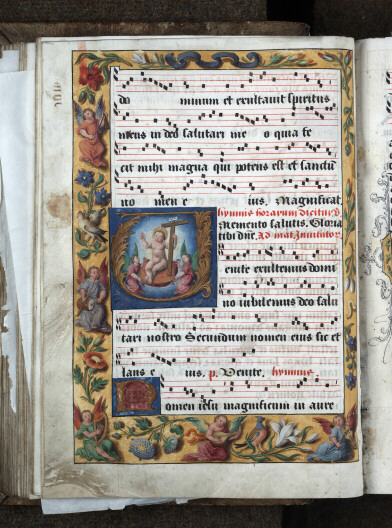 do minum et exultavit spiritus
meus in deo salutari me o quia fe
cit mihi magna qui potens est et sanctū
no men e ius. Magnificat.
hymnus horarum dicitur
Memento salutis. Gloria
tibi dñe. Ad mat Invitator.
enite exultemus domi
no iubilemus deo salu
tari nostro Secundum nomen eius sic et
laus e ius. p. Venite. hymnus.
omen iesu magnificum in aure